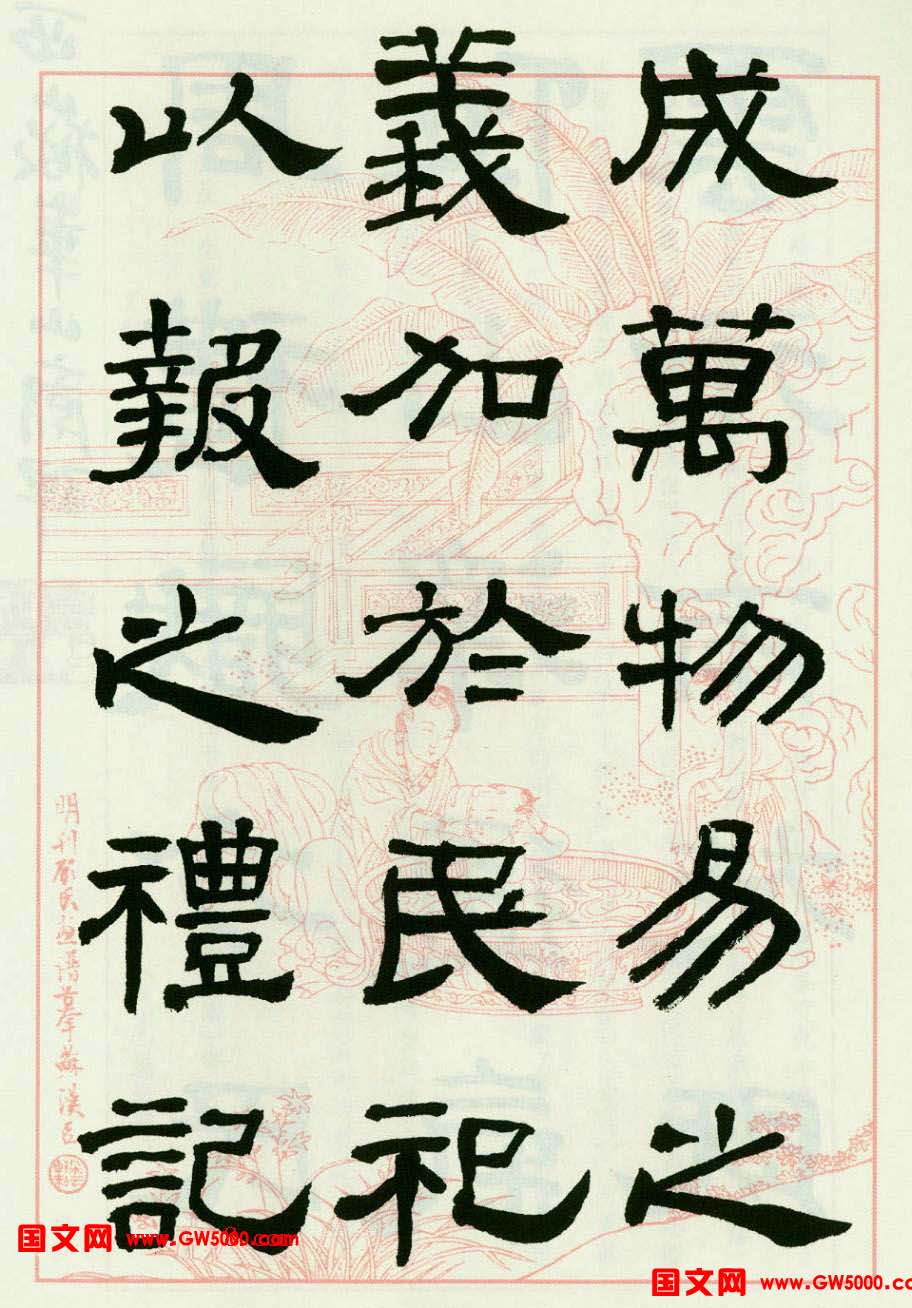 成萬物易之
義加於民祀
以報之禮記
国文网 www.GW5000.com
国文网 www.GW5000.co